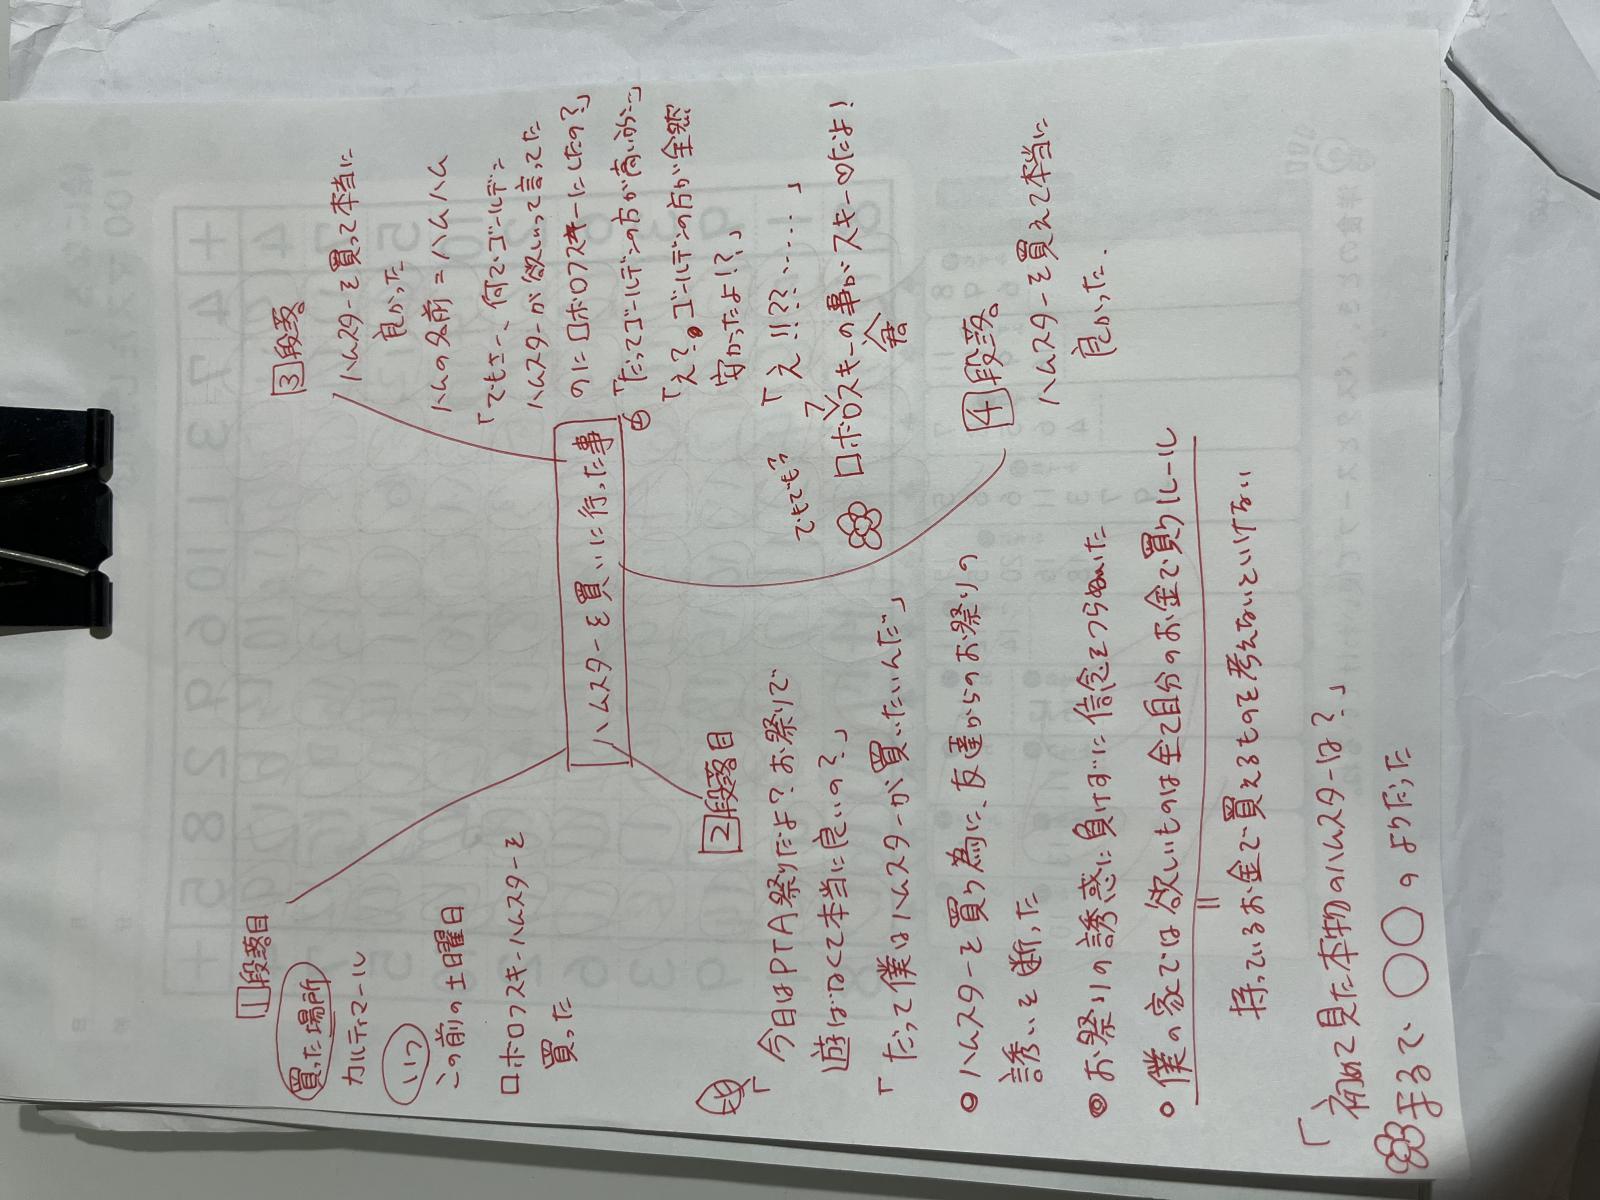 ハムスターを買いに行った事
1段落目
買った場所
カルディマール
いつ
この前の土曜日
ロボロフスキーハムスターを
買った
2段落目
「今日はPTA祭りだよ？お祭りで
遊ばなくて本当に良いの？」
「だって僕はハムスターが買いたいんだ」
◎ハムスターを買う為に、友達からのお祭りの
誘いを断った
◎お祭りの誘惑に負けずに信念をつらぬいた
○僕の家では欲しいものは全て自分のお金で買うルール
=
持っているお金で買えるものを考えないといけない
「初めて見た本物のハムスターは？」
まるで、〇〇のようだった
3段落
ハムスターを買って本当に
良かった
ハムの名前=ハムハム
「でもさ、何でゴールデン
ハムスターが欲しいって言ってた
のにロボロフスキーにしたの？」
「だってゴールデンの方が高いから…」
「え？ゴールデンの方が全然
安かったよ！？」
「え!!??……」
でもでも？
ロボロフスキーの事がスキー♡だよ！
4段落
ハムスターを買えて本当に
良かった.